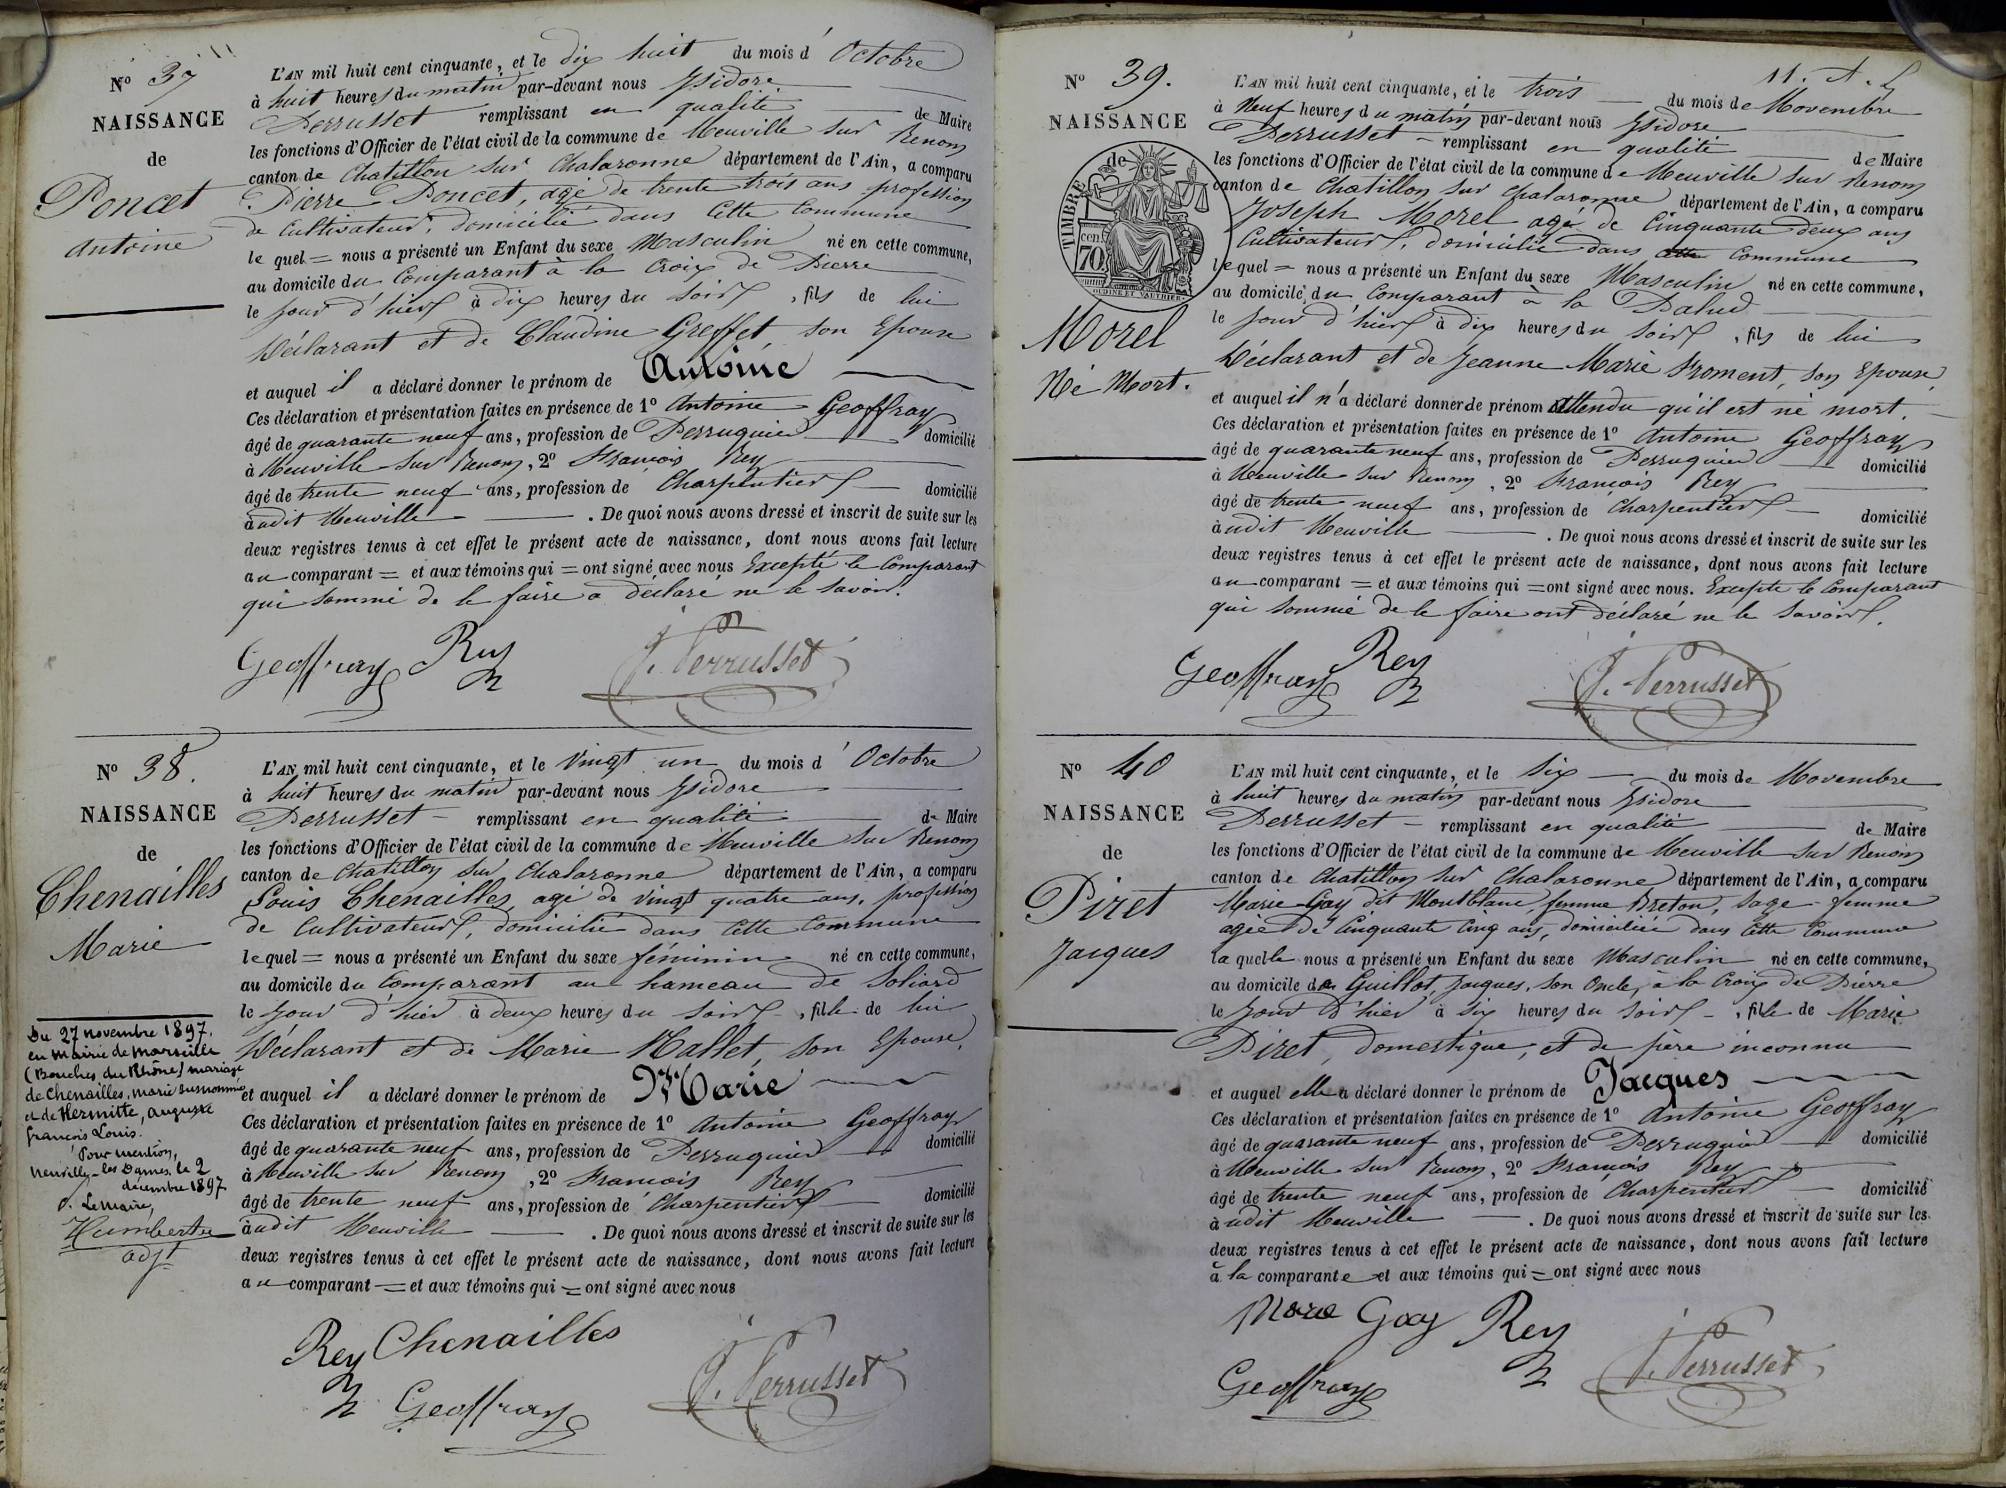 Nº 37
NAISSANCE
de
Poncet
Antoine
L'AN mil huit cent cinquante, et le dix huit du mois d' Octobre
à huit heures du matin par-devant nous Ysidore
Perrusset remplissant en qualité de Maire
les fonctions d'Officier de l'état civil de la commune de Neuville sur Renom
canton de Chatillon sur Chalaronne département de l'Ain, a comparu
Pierre Poncet, agé de trente trois ans profession
de Cultivateur, domicilié dans Cette Commune
le quel = nous a présenté un Enfant du sexe Masculin né en cette commune,
au domicile du Comparant à la Croix de Pierre
le jour d'hier à dix heures du soir, fils de lui
Déclarant et de Claudine Greffet son Epouse
et auquel il a déclaré donner le prénom de Antoine
Ces déclaration et présentation faites en présence de 1º Antoine Geoffray
âgé de quarante neuf ans, profession de Perruquier domicilié
à Neuville sur Renom, 2º François Rey
âgé de trente neuf ans, profession de Charpentier domicilié
àudit Neuville . De quoi nous avons dressé et inscrit de suite sur les
deux registres tenus à cet effet le présent acte de naissance, dont nous avons fait lecture
au comparant = et aux témoins qui = ont signé avec nous Excepté le Comparant
qui sommé de le faire a déclaré ne le savoir.
Geoffray Rey J. Perrusset
Nº 38.
NAISSANCE
de
Chenailles
Marie
Du 27 novembre 1897.
en Mairie de Marseille
(Bouches du Rhône) mariage
de Chenailles, Marie susnommée
et de Hermitte, Auguste
françois Louis.
Pour mention,
Neuville-les Dames, le 2
décembre 1897
P. Le Maire,
Humberter
adjt
L'AN mil huit cent cinquante, et le vingt un du mois d' Octobre
à huit heures du matin par-devant nous Ysidore
Perrusset remplissant en qualité de Maire
les fonctions d'Officier de l'état civil de la commune de Neuville sur Renom
canton de Chatillon sur Chalaronne département de l'Ain, a comparu
Louis Chenailles, agé de vingt quatre ans, profession
de Cultivateur, domicilié dans Cette Commune
lequel = nous a présenté un Enfant du sexe féminin né en cette commune,
au domicile du Comparant au hameau de Soliard
le jour d'hier à deux heures du soir, fille de lui
Déclarant et de Marie Hallet, son Epouse.
et auquel il a déclaré donner le prénom de Marie
Ces déclaration et présentation faites en présence de 1º Antoine Geoffray
âgé de quarante neuf ans, profession de Perruquier domicilié
à Neuville sur Renom, 2º François Rey
âgé de trente neuf ans, profession de Charpentier domicilié
àudit Neuville . De quoi nous avons dressé et inscrit de suite sur les
deux registres tenus à cet effet le présent acte de naissance, dont nous avons fait lecture
au comparant = et aux témoins qui = ont signé avec nous
Rey Chenailles
Geoffray J. Perrusset
11.
Nº 39.
NAISSANCE
de
TIMBRE
cen.
70
OUDINÉ ET VAUTHIER
Morel
Né Mort.
L'AN mil huit cent cinquante, et le trois du mois de Novembre
à Neuf heures du matin par-devant nous Ysidore
Perrusset remplissant en qualité de Maire
les fonctions d'Officier de l'état civil de la commune de Neuville sur Renom
canton de Chatillon sur Chalaronne département de l'Ain, a comparu
Joseph Morel agé de Cinquante deux ans
Cultivateur, domicilié dans cette Commune
lequel = nous a présenté un Enfant du sexe Masculin né en cette commune,
au domicile du Comparant à la Palud
le jour d'hier à dix heures du soir, fils de lui
Déclarant et de Jeanne Marie Froment, son Epouse,
et auquel il n'a déclaré donner de prénom Attendu qu'il est né mort.
Ces déclaration et présentation faites en présence de 1º Antoine Geoffray
âgé de quarante neuf ans, profession de Perruquier domicilié
à Neuville sur Renom, 2º François Rey
âgé de trente neuf ans, profession de Charpentier domicilié
àudit Neuville . De quoi nous avons dressé et inscrit de suite sur les
deux registres tenus à cet effet le présent acte de naissance, dont nous avons fait lecture
au comparant = et aux témoins qui = ont signé avec nous. Excepté le Comparant
qui sommé de le faire ont déclaré ne le savoir.
Geoffray Rey J. Perrusset
Nº 40
NAISSANCE
de
Piret
Jacques
L'AN mil huit cent cinquante, et le Six du mois de Novembre
à huit heures du matin par-devant nous Ysidore
Perrusset remplissant en qualité de Maire
les fonctions d'Officier de l'état civil de la commune de Neuville sur Renom
canton de Chatillon sur Chalaronne département de l'Ain, a comparu
Marie Gay dit Montblanc, femme Breton, sage-femme
agée de Cinquante Cinq ans, domiciliée dans Cette Commune
laquelle nous a présenté un Enfant du sexe Masculin né en cette commune,
au domicile de Guillot, Jacques, son Oncle, à la Croix de Pierre
le jour d'hier à six heures du soir, fils de Marie
Piret, domestique, et de père inconnu
et auquel elle a déclaré donner le prénom de Jacques
Ces déclaration et présentation faites en présence de 1º Antoine Geoffray
âgé de quarante neuf ans, profession de Perruquier domicilié
à Neuville sur Renom, 2º François Rey
âgé de trente neuf ans, profession de Charpentier domicilié
àudit Neuville . De quoi nous avons dressé et inscrit de suite sur les
deux registres tenus à cet effet le présent acte de naissance, dont nous avons fait lecture
à la comparante et aux témoins qui = ont signé avec nous
Marie Gay Rey
Geoffray J. Perrusset